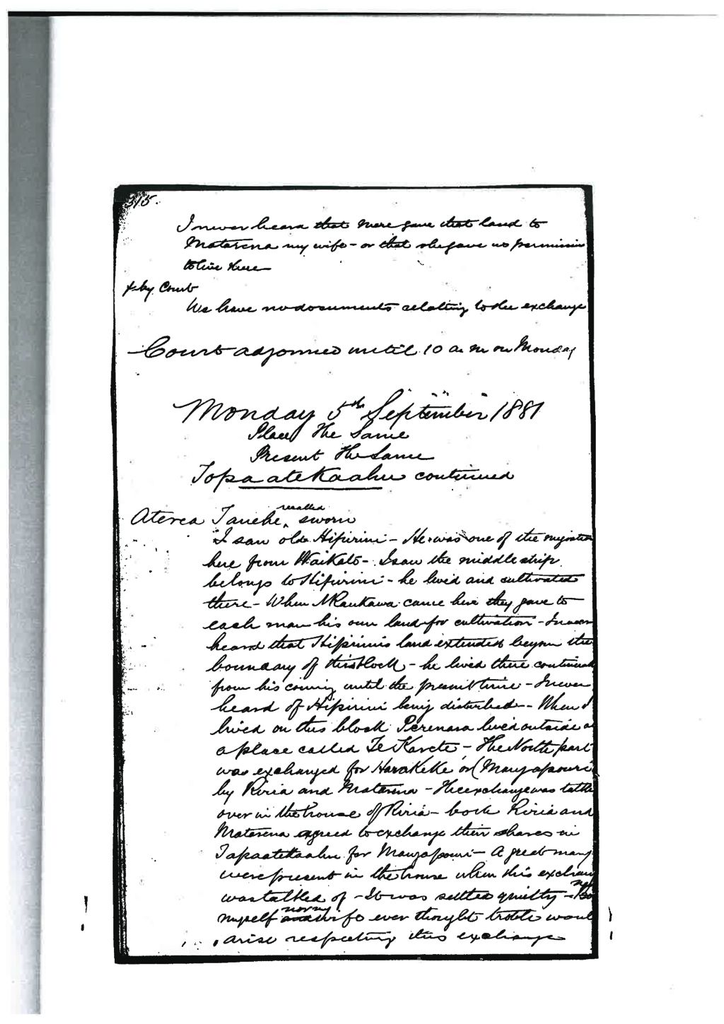 315.
I never heard that Mere gave that land to
Matarena my wife - or that she gave us permission
to live there
x by Court
We have no documents relating to the exchange
Court adjourned until 10 a m on Monday
Monday 5th September 1881
Place The Same
Present The Same
Topaatekaahu continued
Aterea Tanehe, recalled sworn
I saw old Hipirini - He was one of the migration
here from Waikato - I saw the middle strip
belongs to Hipirini - he lived and cultivated
there - When NRaukawa came here they gave to
each man his own land for cultivation - I never
heard that Hipirinis land extended beyond the
boundary of this block - he lived there continually
from his coming until the present time - I never
heard of Hipirini being disturbed - When I
lived on this block Perenara lived outside at
a place called Te Karete - The North part
was exchanged for Harakeke or (Mangapouri
by Riria and Matarena - The exchange was talked
over in the house of Riria - both Riria and
Matarena agreed to exchange their shares in
Tapaatekaahu for Mangapouri - A great many
were present in the house when this exchange
was talked of - It was settled quietly -
myself nor my wife ever thought trouble would
arise respecting this exchange